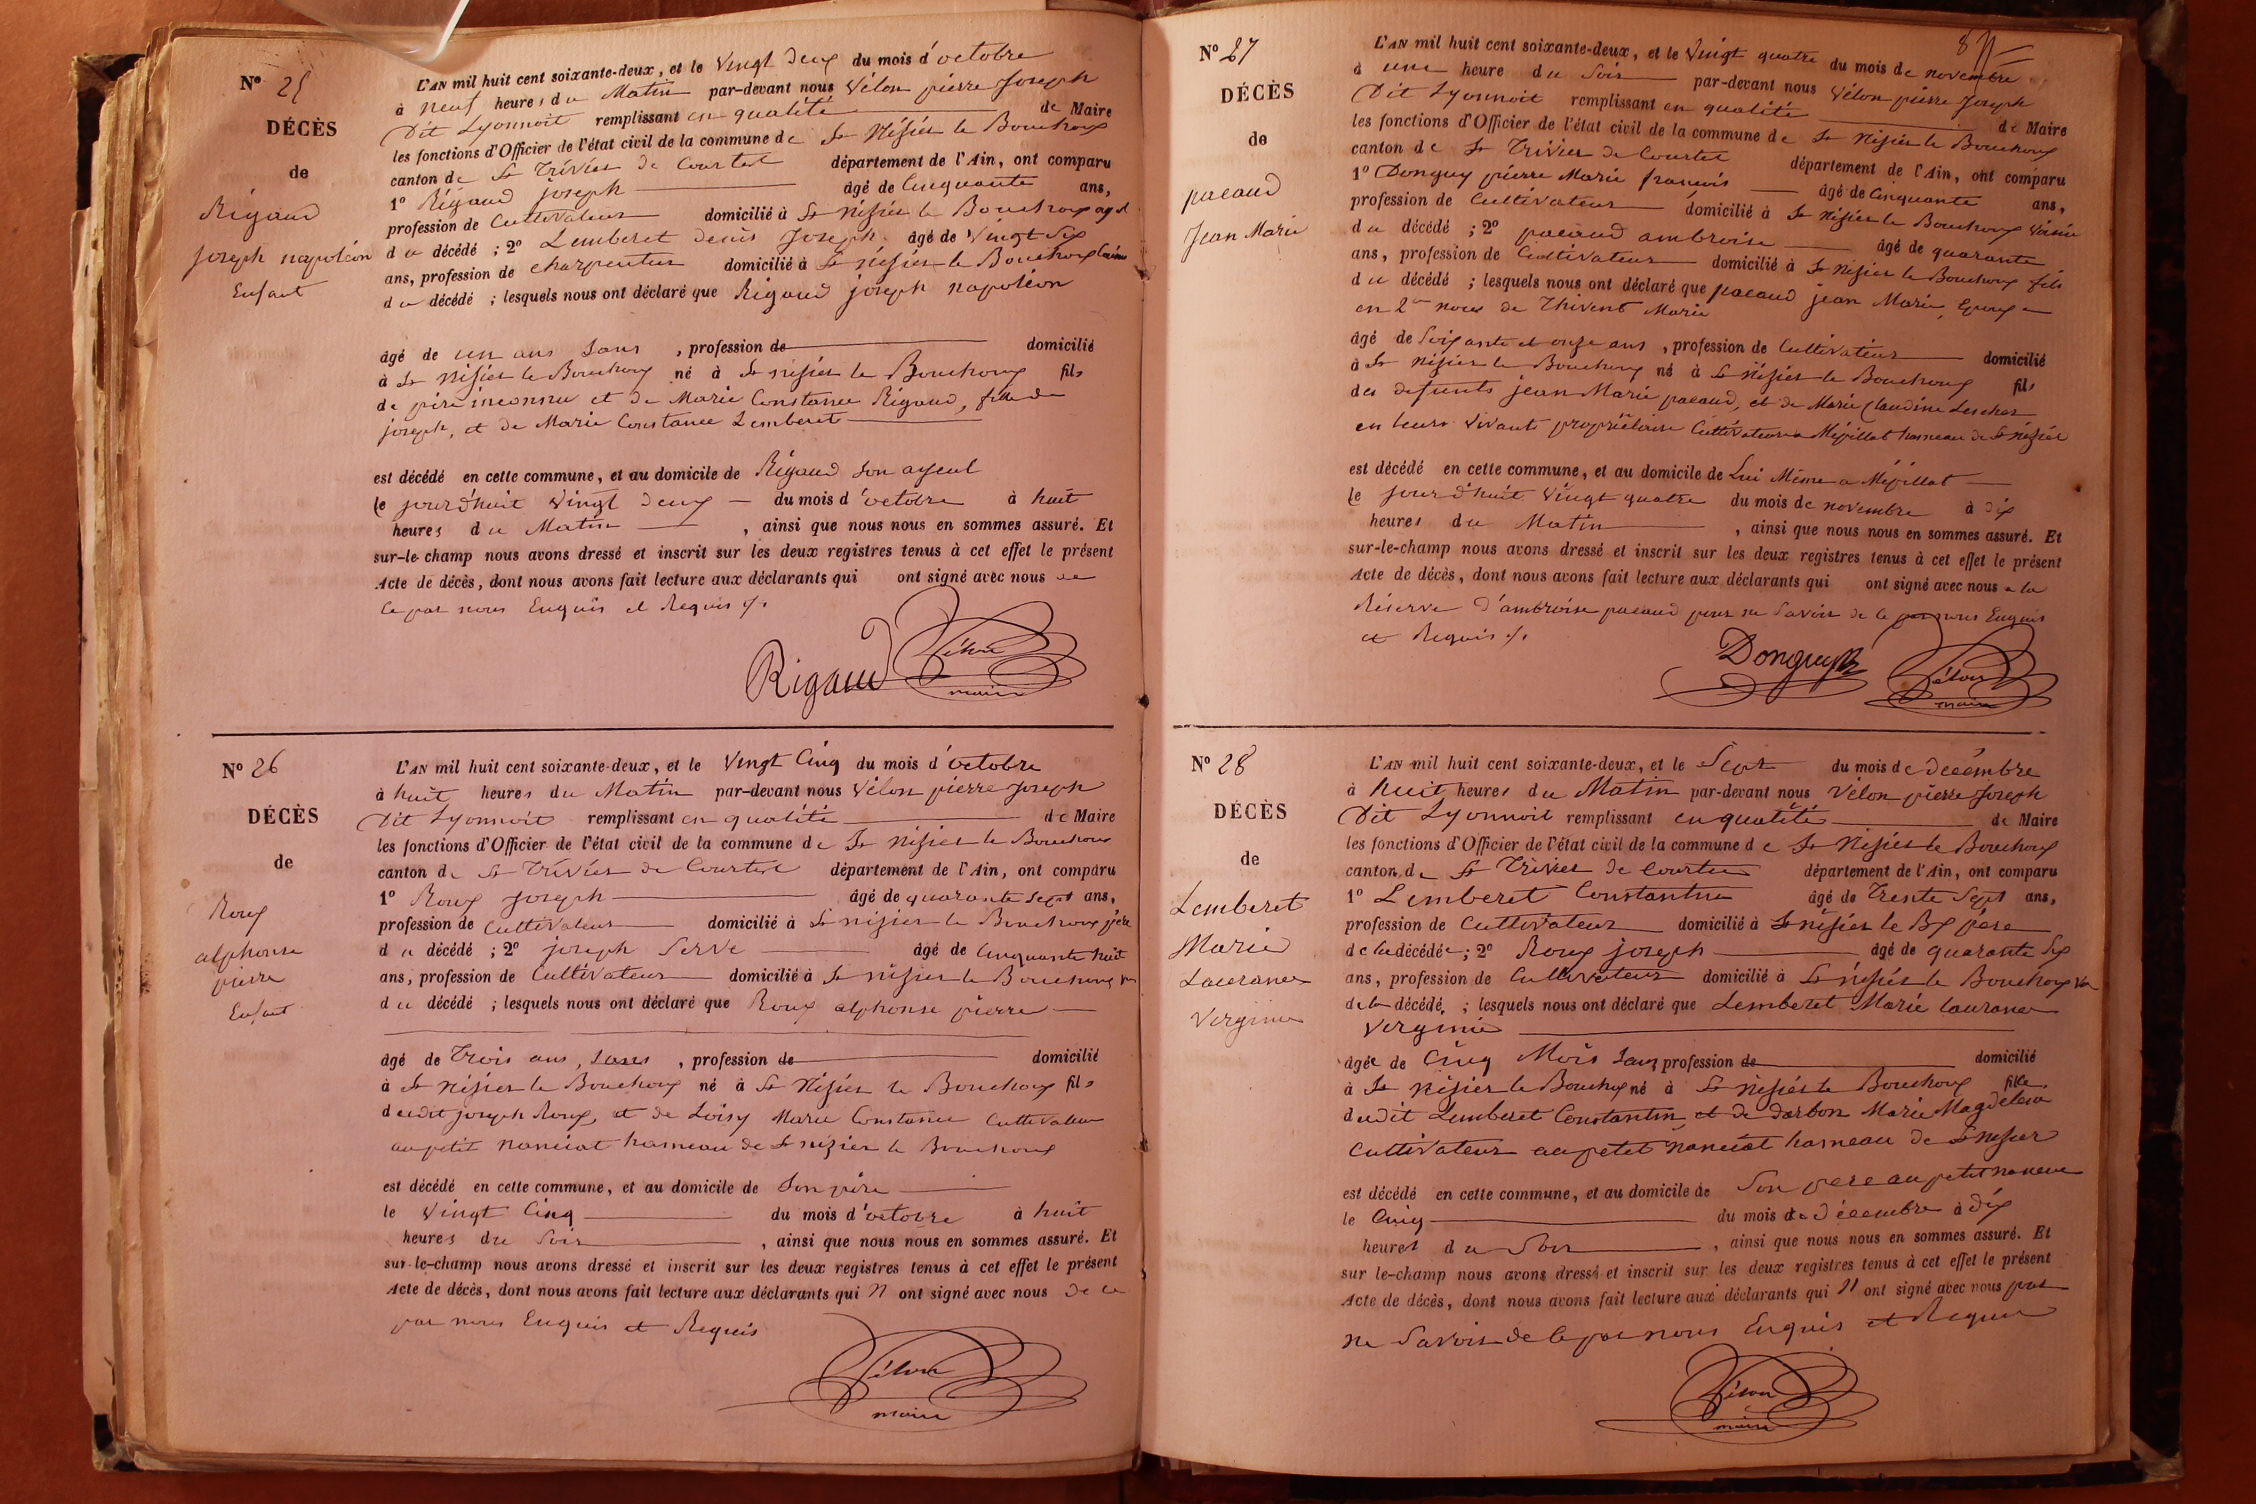 N° 25
DÉCÈS
de
Rigaud
joseph napoléon
Enfant
L'AN mil huit cent soixante-deux, et le vingt deux du mois d'octobre
à neuf heures du Matin par-devant nous Vélon pierre Joseph
Dit Lyonnoit remplissant en qualité de Maire
les fonctions d'Officier de l'état civil de la commune de St Nisier le Bouchoux
canton de St Trivier de Courtes département de l'Ain, ont comparu
1° Rigaud joseph âgé de Cinquante ans,
profession de Cultivateur domicilié à St nisier le Bouchoux
du décédé ; 2° Lemberet denis Joseph âgé de vingt six
ans, profession de charpentier domicilié à St nisier le Bouchoux
du décédé ; lesquels nous ont déclaré que Rigaud joseph napoléon
âgé de un ans Sans , profession de domicilié
à St nisier le Bouchoux né à St nisier le Bouchoux fils
de père inconnu et de Marie Constance Rigaud, fille de
joseph, et de Marie Constance Lemberet
est décédé en cette commune, et au domicile de Rigaud son ayeul
le jourd'huit vingt deux du mois d'octobre à huit
heures du Matin , ainsi que nous nous en sommes assuré. Et
sur-le-champ nous avons dressé et inscrit sur les deux registres tenus à cet effet le présent
Acte de décès, dont nous avons fait lecture aux déclarants qui ont signé avec nous de
ce par nous Enquis et Requis ./.
Rigaud Vélon
maire
N° 26
DÉCÈS
de
Roux
alphonse
pierre
Enfant
L'AN mil huit cent soixante-deux, et le vingt Cinq du mois d'octobre
à huit heures du Matin par-devant nous Vélon pierre Joseph
Dit Lyonnoit remplissant en qualité de Maire
les fonctions d'Officier de l'état civil de la commune de St Nisier le Bouchoux
canton de St Trivier de Courtes département de l'Ain, ont comparu
1° Roux Joseph âgé de quarante sept ans,
profession de Cultivateur domicilié à St nisier le Bouchoux père
du décédé ; 2° joseph Serve âgé de Cinquante huit
ans, profession de Cultivateur domicilié à St nisier le Bouchoux
du décédé ; lesquels nous ont déclaré que Roux alphonse pierre
âgé de Trois ans, sans , profession de domicilié
à St Nisier le Bouchoux né à St Nisier le Bouchoux fils
dudit joseph Roux, et de Loisy Marie Constance Cultivateur
au petit nanciat hameau de St nizier le Bouchoux
est décédé en cette commune, et au domicile de Son père
le vingt Cinq du mois d'octobre à huit
heures du Soir , ainsi que nous nous en sommes assuré. Et
sur-le-champ nous avons dressé et inscrit sur les deux registres tenus à cet effet le présent
Acte de décès, dont nous avons fait lecture aux déclarants qui n ont signé avec nous de ce
par nous Enquis et Requis
Vélon
maire
N° 27
DÉCÈS
de
pacaud
Jean Marie
L'AN mil huit cent soixante-deux, et le vingt quatre du mois de novembre
à une heure du Soir par-devant nous Vélon pierre Joseph
Dit Lyonnoit remplissant en qualité de Maire
les fonctions d'Officier de l'état civil de la commune de St Nisier le Bouchoux
canton de St Trivier de Courtes département de l'Ain, ont comparu
1° Donguy pierre Marie francois âgé de Cinquante ans,
profession de Cultivateur domicilié à St Nisier le Bouchoux voisin
du décédé ; 2° pacaud ambroise âgé de quarante
ans, profession de Cultivateur domicilié à St Nisier le Bouchoux fils
du décédé ; lesquels nous ont déclaré que pacaud jean Marie, Epoux
en 2es noces de Thivent Marie
âgé de soixante et onze ans , profession de Cultivateur domicilié
à St Nisier le Bouchoux né à St Nisier le Bouchoux fils
des defunts jean Marie pacaud, et de Marie Claudine Lescher
en leurs vivants propriétaire Cultivateurs a Mépillat hameau de St nézier
est décédé en cette commune, et au domicile de Lui Même a Mépillat
le jourd'huit vingt quatre du mois de novembre à dix
heures du Matin , ainsi que nous nous en sommes assuré. Et
sur-le-champ nous avons dressé et inscrit sur les deux registres tenus à cet effet le présent
Acte de décès, dont nous avons fait lecture aux déclarants qui ont signé avec nous a la
Réserve d'ambroise pacaud pour ne Savoir de ce par nous Enquis
et Requis ./.
Donguy Vélon
maire
N° 28
DÉCÈS
de
Lemberet
Marie
Laurance
Verginie
L'AN mil huit cent soixante-deux, et le Sept du mois de décembre
à huit heures du Matin par-devant nous Vélon pierre Joseph
Dit Lyonnoit remplissant en qualité de Maire
les fonctions d'Officier de l'état civil de la commune de St Nisier le Bouchoux
canton de St Trivier de Courtes département de l'Ain, ont comparu
1° Lemberet Constantin âgé de Trente Sept ans,
profession de Cultivateur domicilié à St nisier le Bx père
de la décédée ; 2° Roux joseph âgé de quarante six
ans, profession de Cultivateur domicilié à St nisier le Bouchoux
de la décédé, ; lesquels nous ont déclaré que Lemberet Marie laurance
Verginie
âgée de Cinq Mois Sans profession de domicilié
à St Nisier le Bouchoux né à St Nisier le Bouchoux fille
dudit Lemberet Constantin et de darbon Marie Magdelene
Cultivateur au petit nanciat hameau de St nisier
est décédé en cette commune, et au domicile de Son pere au petit
le Cinq du mois de décembre à dix
heures du Soir , ainsi que nous nous en sommes assuré. Et
sur le-champ nous avons dressé et inscrit sur les deux registres tenus à cet effet le présent
Acte de décès, dont nous avons fait lecture aux déclarants qui n ont signé avec nous pour
ne Savoir de ce par nous Enquis et Requis
Vélon
maire